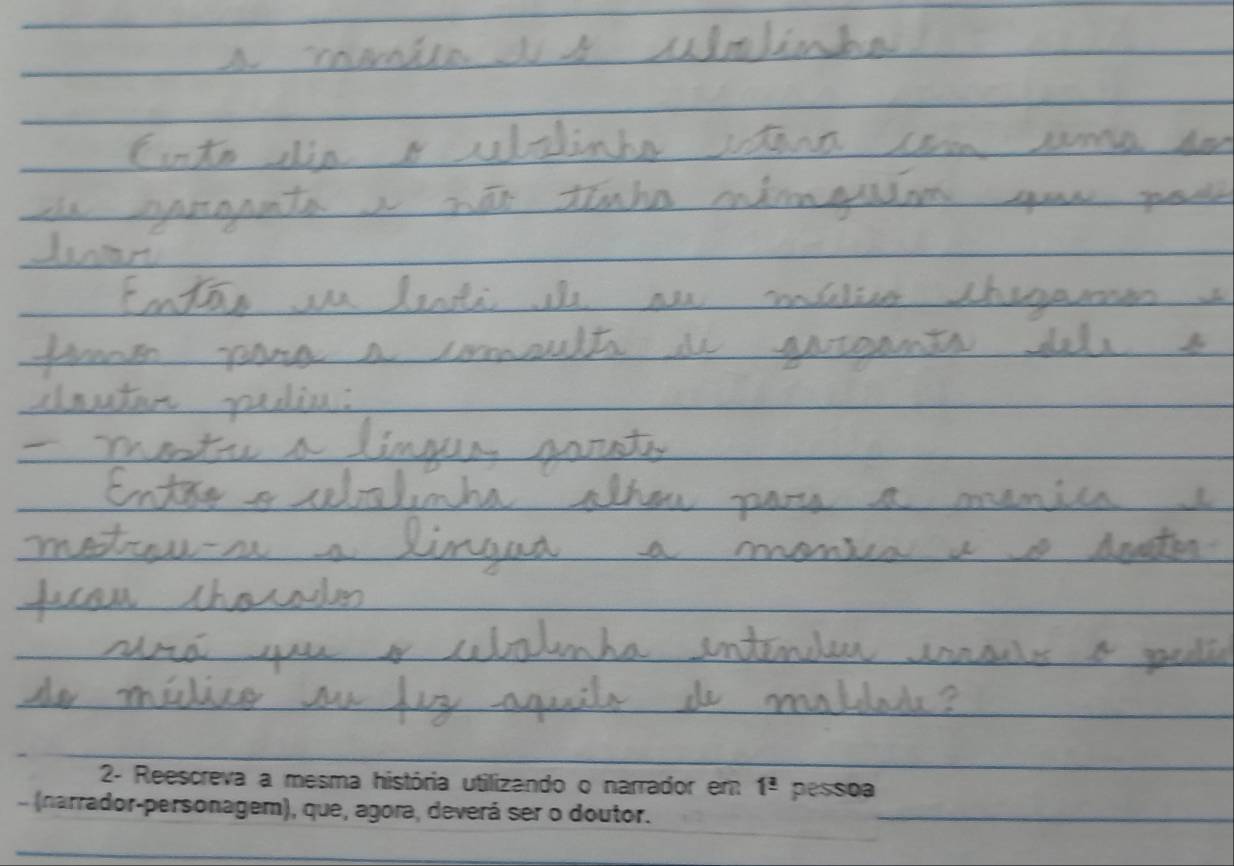 a monica e o cebolinha
Certo dia o cebolinha estava com uma dor
de garganta e não tinha ninguém que pode
levar
Então eu levei ele ao médico chegamos e
fomos para a consulta de garganta dele o
doutor pediu:
- mostre a língua, garoto
Então o cebolinha olhou para a monica e
mostrou-se a lingua a monica e o doutor
ficou chocados
será que o cebolinha entendeu errado o pedid
do médico ou fez aquilo de maldade?
2- Reescreva a mesma história utilizando o narrador em 1ª pessoa
(narrador-personagem), que, agora, deverá ser o doutor.